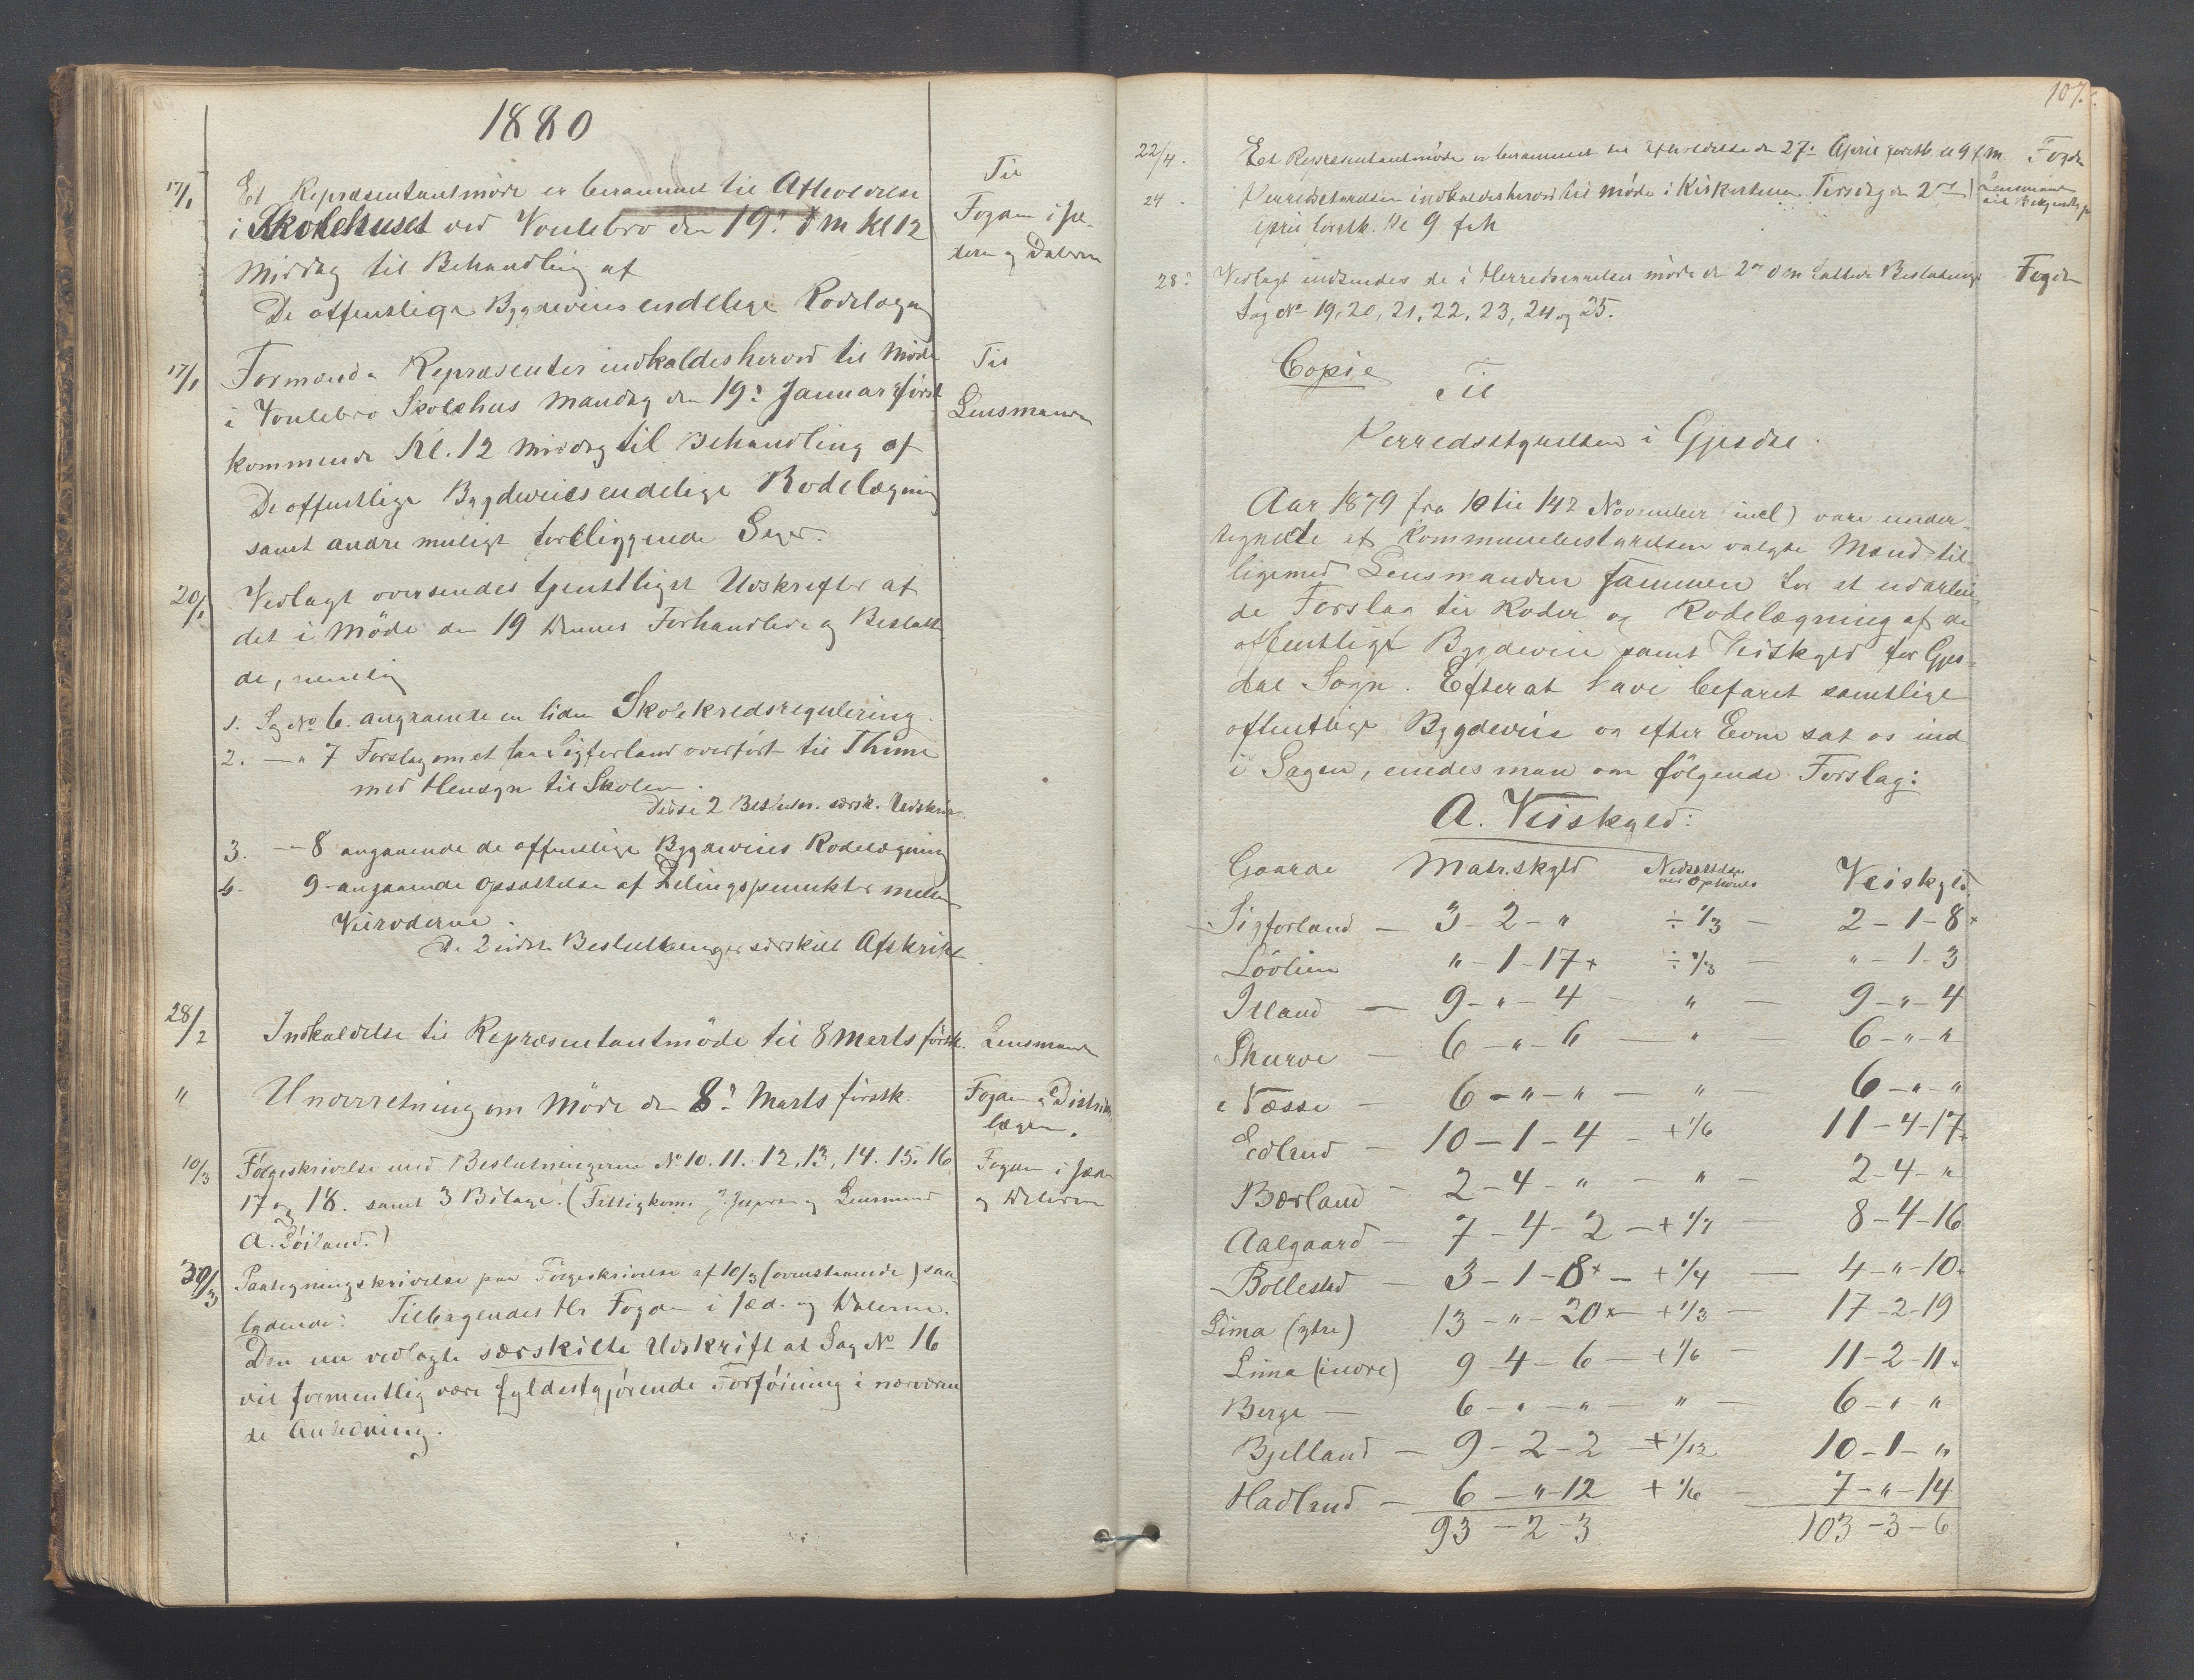 1880
17/1 Et Repræsentantmöde er berammet til Afholdelse
Til
i Skolehuset ved Voulebro den 19. d m Kl 12
Fogden i Jæ-
Middag til Behandling af
deren og Dalerne
De offentlige Bygdeveies endelige Rodelægn
17/1 Formænd & Repræsenter indkaldes herved til Möde
Til
i Voulebro Skolehus Mandag den 19. Januar först
Lensmanden
kommende Kl. 12 Middag til Behandling af
De offentlige Bygdeveies endelige Rodelægning
samt andre muligt foreliggende Sager.
20/1 Vedlagt oversendes tjenstligst Udskrifter af
det i Möde den 19 dennes Forhandlede og Beslutte
de, nemlig
1. Sag No 6. angaaende en liden Skolekredsregulering.
2. — " 7 Forslag om at faa Sigforland overfört til Thime
med Hensyn til Skolen.
Disse 2 Beslutn. særsk. Udskrift
3. — 8 angaaende de offentlige Bygdeveies Rodelægning
4. 9 angaaende Opsættelse af Delingspunkter mellem
Veiroderne.
De 2 sidste Beslutninger særskilt Afskrift.
28/2 Indkaldelse til Repræsentantmöde til 8 Marts förstk.
Lensmanden
" Underretning om Möde den 8. Marts förstk.
Fogden & Distrikts
lægen.
10/3 Fölgeskrivelse med Beslutningerne No 10. 11. 12. 13, 14. 15. 16
Fogden i Jæd
17 og 18. samt 3 Bilage. (Fattigkom. og Lensmand
og Dalerne
A. Söiland.)
30/3 Paategningsskrivelse paa Fölgeskrivelse af 10/3 (ovenstaaende) saa
lydende: Tilbagesendes Hr Fogden i Jæd. og Dalerne.
Den nu vedlagte særskilte Udskrift af Sag No 16
vil formentlig være fyldestgjörende Forföining i nærværen
de Anledning.
107.
22/4. Et Repræsentantmöde er berammet til Afholdelse den 27. April förstk. Kl 9 f m.
Fogden
24. Herredsstyrelsen indkaldes herved til Möde i Kirkestuen Tirsdag den 27
Lensmanden
April förstk. Kl 9 fm
28. Vedlagt indsendes de i Herredsstyrelsens möde d 27 d m fattede Beslutninger
Fogden
Sag No 19, 20, 21, 22, 23, 24 og 25.
Copie
Til
Herredsstyrelsen i Gjesdal.
Aar 1879 fra 10 til 14 November (incl) vare under-
tegnede af Kommunebestyrelsen valgte Mænd til-
ligemed Lensmanden sammen for at udarbei-
de Forslag til Roder og Rodelægning af de
offentlige Bygdeveie samt Veiskyld for Gjes-
dal Sogn. Efterat have befaret samtlige
offentlige Bygdeveie og efter Evne sat os ind
i Sagen, enedes man om fölgende Forslag:
A. Veiskyld:
Gaarde Matr.skyld Nedsættelse eller Ophöielse Veiskyld.
Sigforland — 3 - 2 - " ÷ 1/3 — 2 - 1 - 8+
Lövlien " - 1 - 17+ ÷ 1/3 — " - 1 - 3
Illand — 9 - " - 4 — " — 9 - " - 4
Skurve — 6 - " - 6 — " — 6 - " - "
Næsse — 6 - " - " — " — 6 - " - "
Edland — 10 - 1 - 4 - + 1/6 11 - 4 - 17+
Bærland - 2 - 4 - " - " - 2 - 4 - "
Aalgaard - 7 - 4 - 2 - + 1/7 — 8 - 4 - 16
Bollestad — 3 - 1 - 8+ - + 1/4 — 4 - " - 10+
Lima (ytre) 13 - " - 20+ - + 1/3 — 17 - 2 - 19
Lima (indre) 9 - 4 - 6 - + 1/6 — 11 - 2 - 11+
Berge — 6 - " - " - " — 6 - " "
Bjelland — 9 - 2 - 2 - + 1/12 10 - 1 - "
Hadland — 6 - " - 12 + 1/6 — 7 - " - 14
93 - 2 - 3 103 - 3 - 6